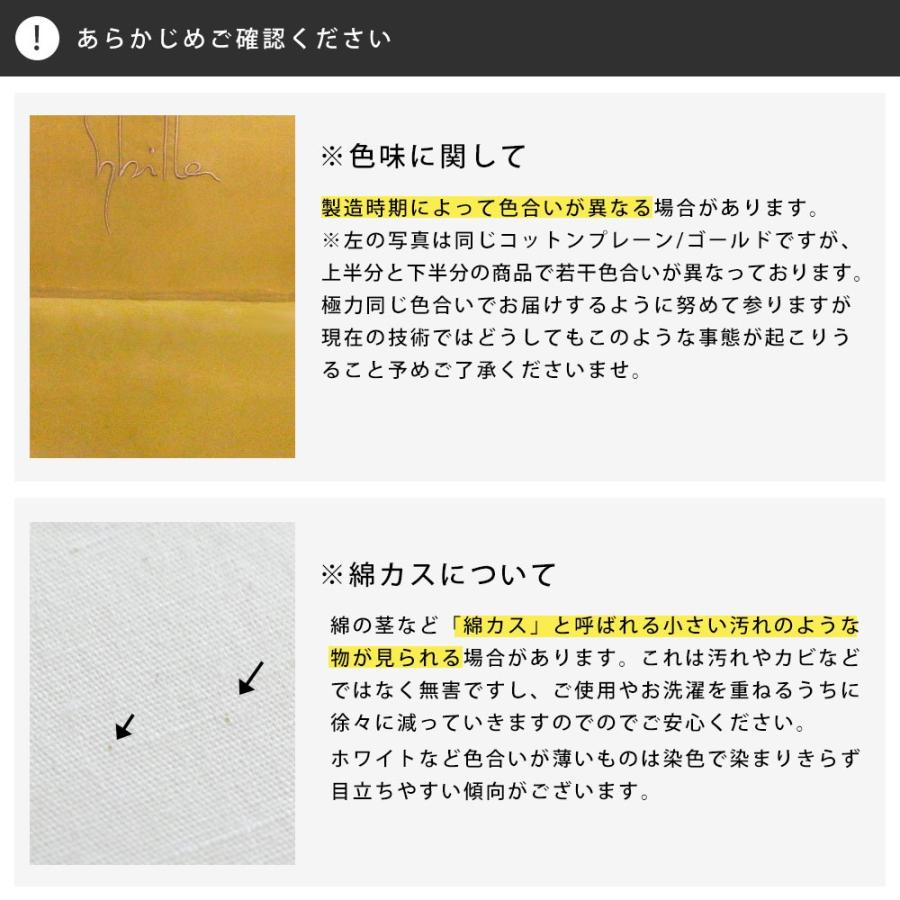 !
あらかじめご確認ください
Sybilla
※色味に関して
製造時期によって色合いが異なる場合があります。
※左の写真は同じコットンプレーン/ゴールドですが、
上半分と下半分の商品で若干色合いが異なっております。
極力同じ色合いでお届けするように努めて参りますが
現在の技術ではどうしてもこのような事態が起こりう
ること予めご了承くださいませ。
※綿カスについて
綿の茎など「綿カス」と呼ばれる小さい汚れのような
物が見られる場合があります。これは汚れやカビなど
ではなく無害ですし、ご使用やお洗濯を重ねるうちに
徐々に減っていきますのでのでご安心ください。
ホワイトなど色合いが薄いものは染色で染まりきらず
目立ちやすい傾向がございます。